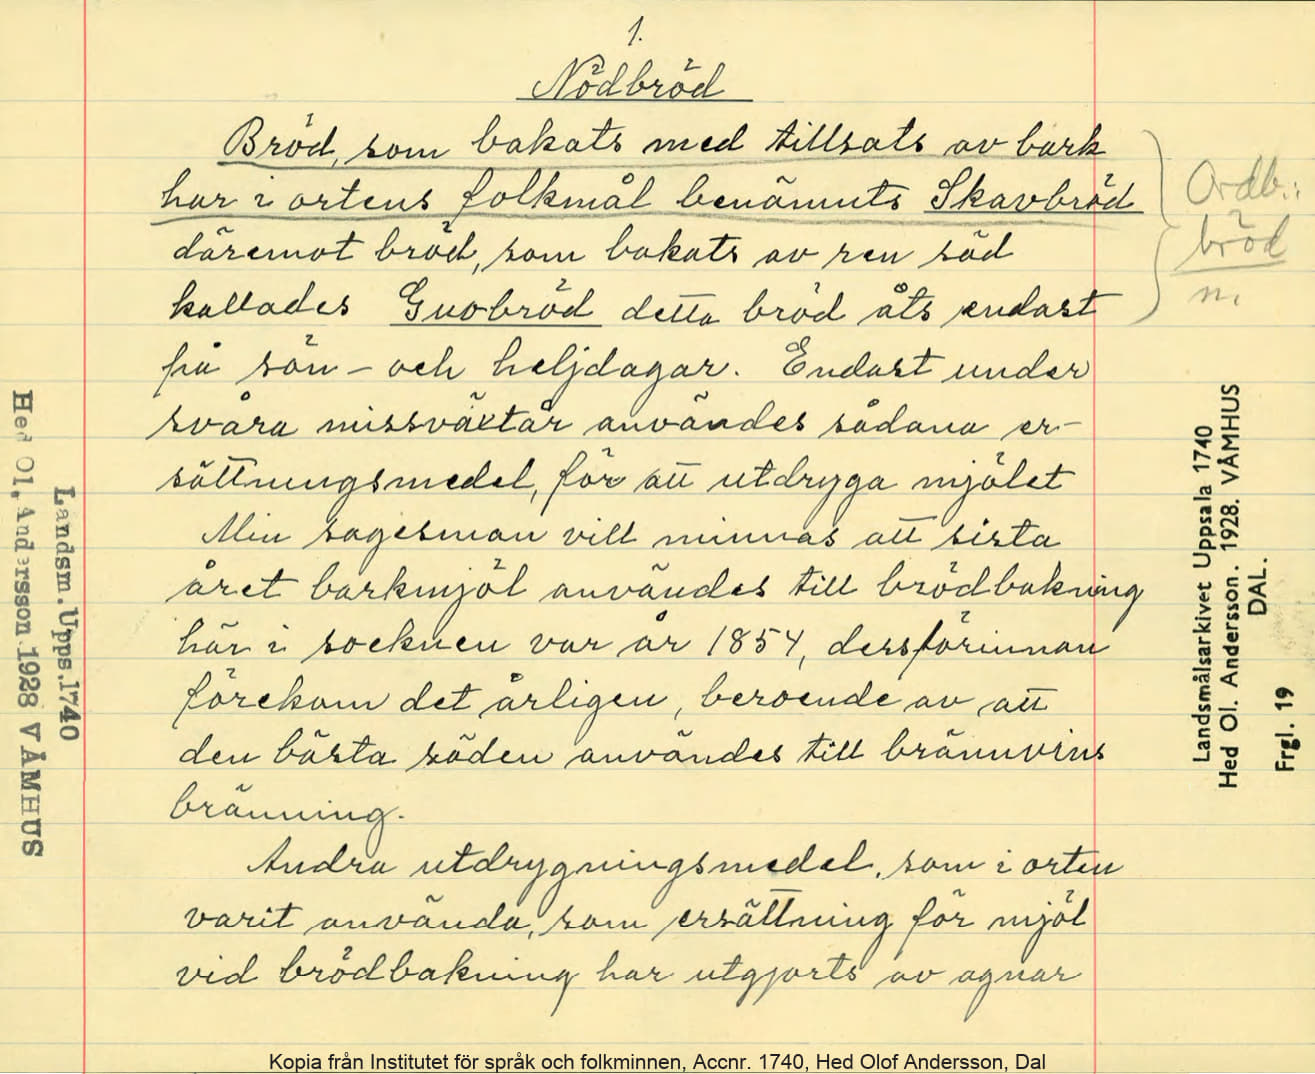 1.
Nödbröd
Bröd, som bakats med tillsats av bark
har i ortens folkmål benämnts Skavbröd
däremot bröd, som bakats av ren säd
kallades Guobröd detta bröd åts endast
på sön- och heljdagar. Endast under
svåra missväxtår användes sådana er-
sättningsmedel, för att utdryga mjölet
Min sagesman vill minnas att sista
året barkmjöl användes till brödbakning
här i socknen var år 1854, dessförinnan
förekom det årligen, beroende av att
den bästa säden användes till brännvins
bränning.
Andra utdrygningsmedel, som i orten
varit använda, som ersättning för mjöl
vid brödbakning har utgjorts av agnar
Ordb.:
bröd
n.
Landsm. Upps. 1740
Hed Ol. Andersson. 1928 VÅMHUS
Landsmålsarkivet Uppsala 1740
Hed Ol. Andersson. 1928. VÅMHUS
DAL.
Frgl. 19
Kopia från Institutet för språk och folkminnen, Accnr. 1740, Hed Olof Andersson, Dal